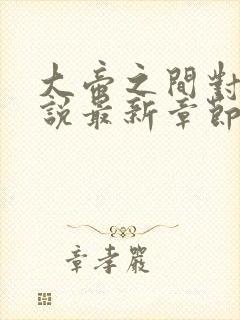 大帝之間對
說最新章節
章孝嚴